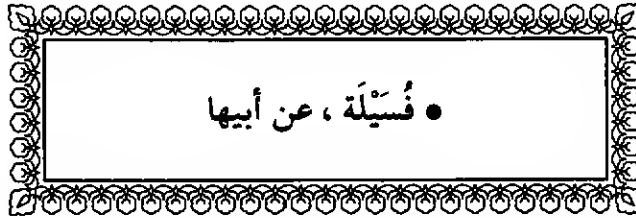 ● فُسَيْلَة ، عن أبيها